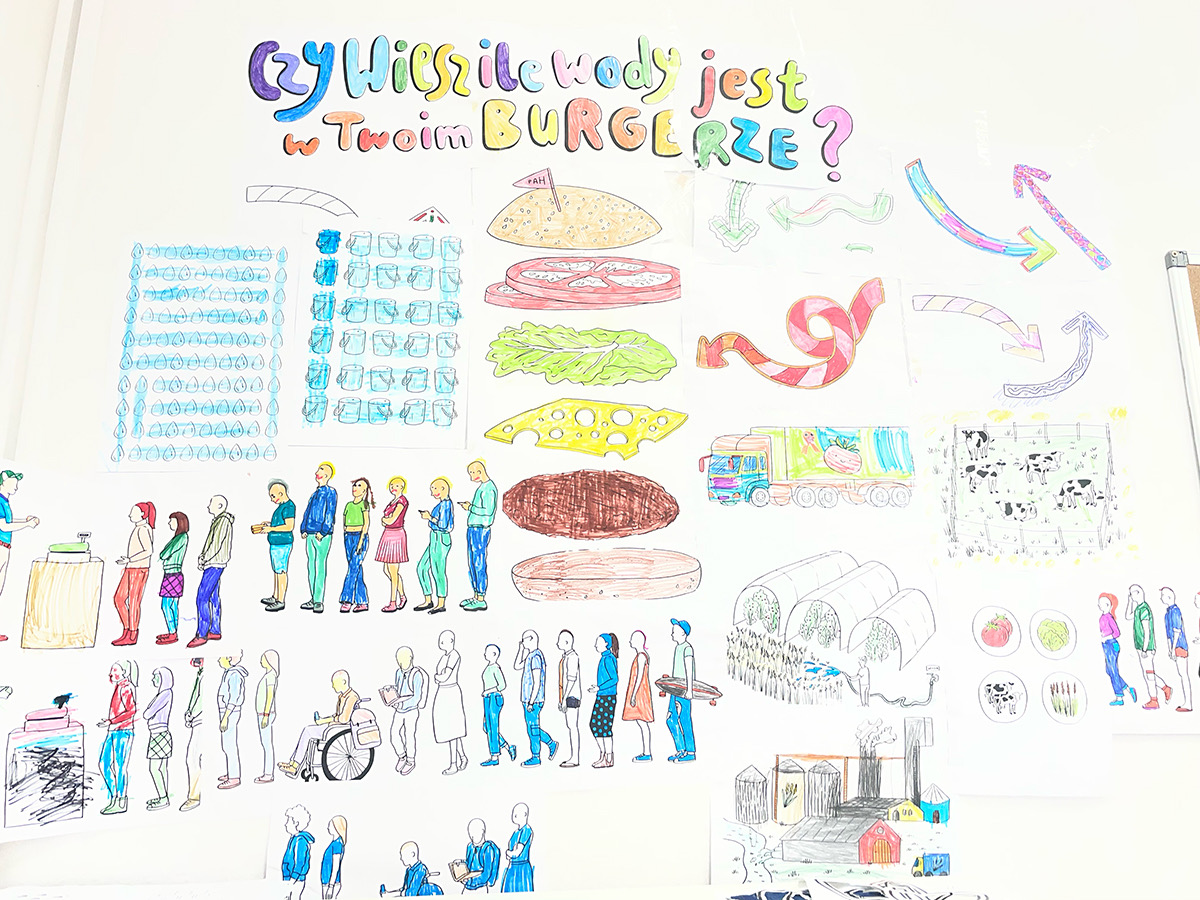 Czy Wiesz ile wody jest
w Twoim BURGERZE?
PAH